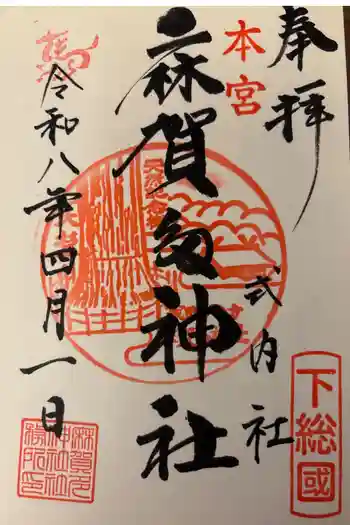 奉拝
本宮
麻賀多神社
式内社
下総國
令和八年四月一日
麻賀多
神社社
務所印